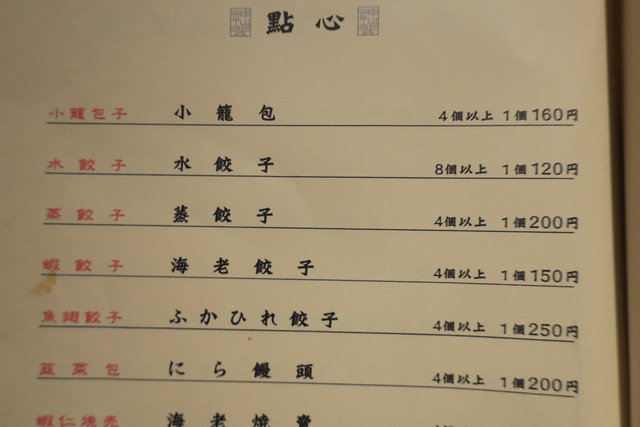 點心
小籠包子 小籠包 4個以上 1個160円
水餃子 水餃子 8個以上 1個120円
蒸餃子 蒸餃子 4個以上 1個200円
蝦餃子 海老餃子 4個以上 1個150円
魚翅餃子 ふかひれ餃子 4個以上 1個250円
韮菜包 にら饅頭 4個以上 1個200円
蝦仁焼売 海老焼賣